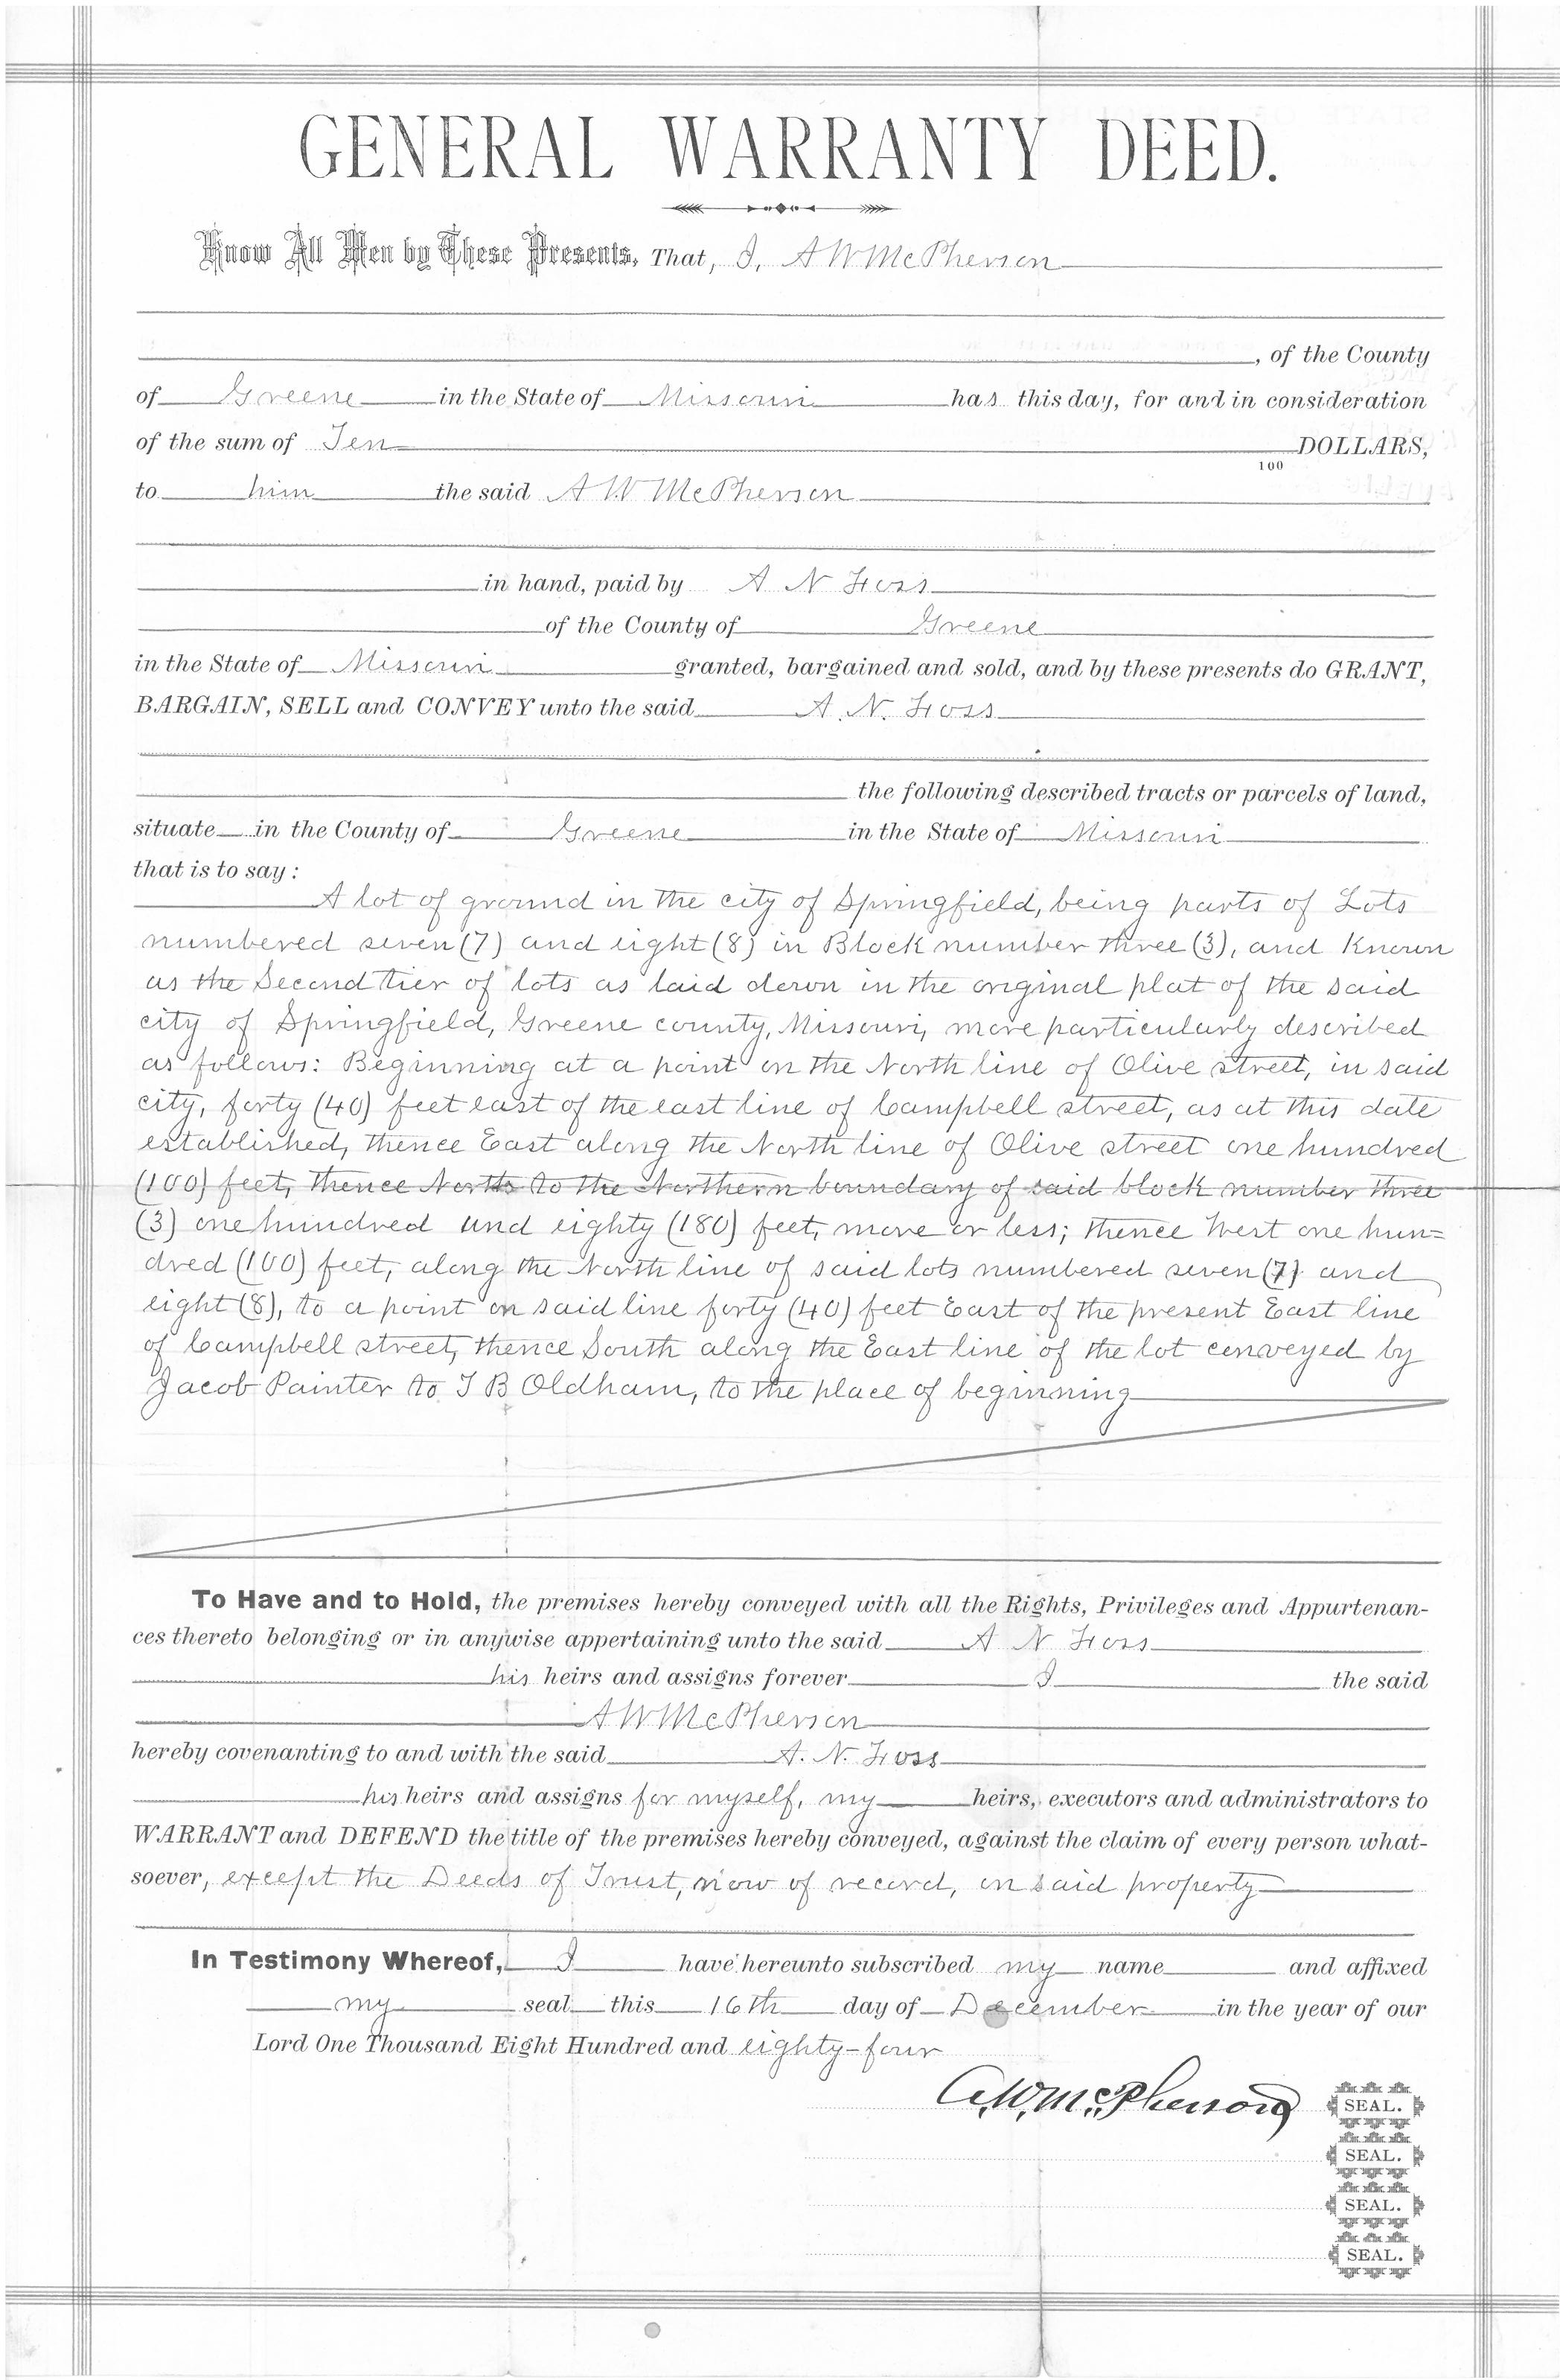 GENERAL WARRANTY DEED.
Know All Men by These Presents, That, I, A W McPherson
, of the County
of Greene in the State of Missouri has this day, for and in consideration
of the sum of Ten DOLLARS,
100
to him the said A W McPherson
in hand, paid by A N Foss
of the County of Greene
in the State of Missouri granted, bargained and sold, and by these presents do GRANT,
BARGAIN, SELL and CONVEY unto the said A. N. Foss
the following described tracts or parcels of land,
situate in the County of Greene in the State of Missouri
that is to say:
A lot of ground in the city of Springfield, being parts of Lots
numbered seven (7) and eight (8) in Block number three (3), and Known
as the Second tier of lots as laid down in the original plat of the said
city of Springfield, Greene county, Missouri, more particularly described
as follows: Beginning at a point on the North line of Olive street, in said
city, forty (40) feet east of the east line of Campbell street, as at this date
established, thence East along the North line of Olive street one hundred
(100) feet, thence North to the Northern boundary of said block number three
(3) one hundred and eighty (180) feet, more or less; thence West one hun=
dred (100) feet, along the North line of said lots numbered seven (7) and
eight (8), to a point on said line forty (40) feet East of the present East line
of Campbell street, thence South along the East line of the lot conveyed by
Jacob Painter to T B Oldham, to the place of beginning
To Have and to Hold, the premises hereby conveyed with all the Rights, Privileges and Appurtenan-
ces thereto belonging or in anywise appertaining unto the said A N Foss
his heirs and assigns forever I the said
A W McPherson
hereby covenanting to and with the said A. N. Foss
his heirs and assigns for myself, my heirs, executors and administrators to
WARRANT and DEFEND the title of the premises hereby conveyed, against the claim of every person what-
soever, except the Deeds of Trust, now of record, on said property
In Testimony Whereof, I have hereunto subscribed my name and affixed
my seal this 16th day of December in the year of our
Lord One Thousand Eight Hundred and eighty-four
A. W. McPherson SEAL.
SEAL.
SEAL.
SEAL.